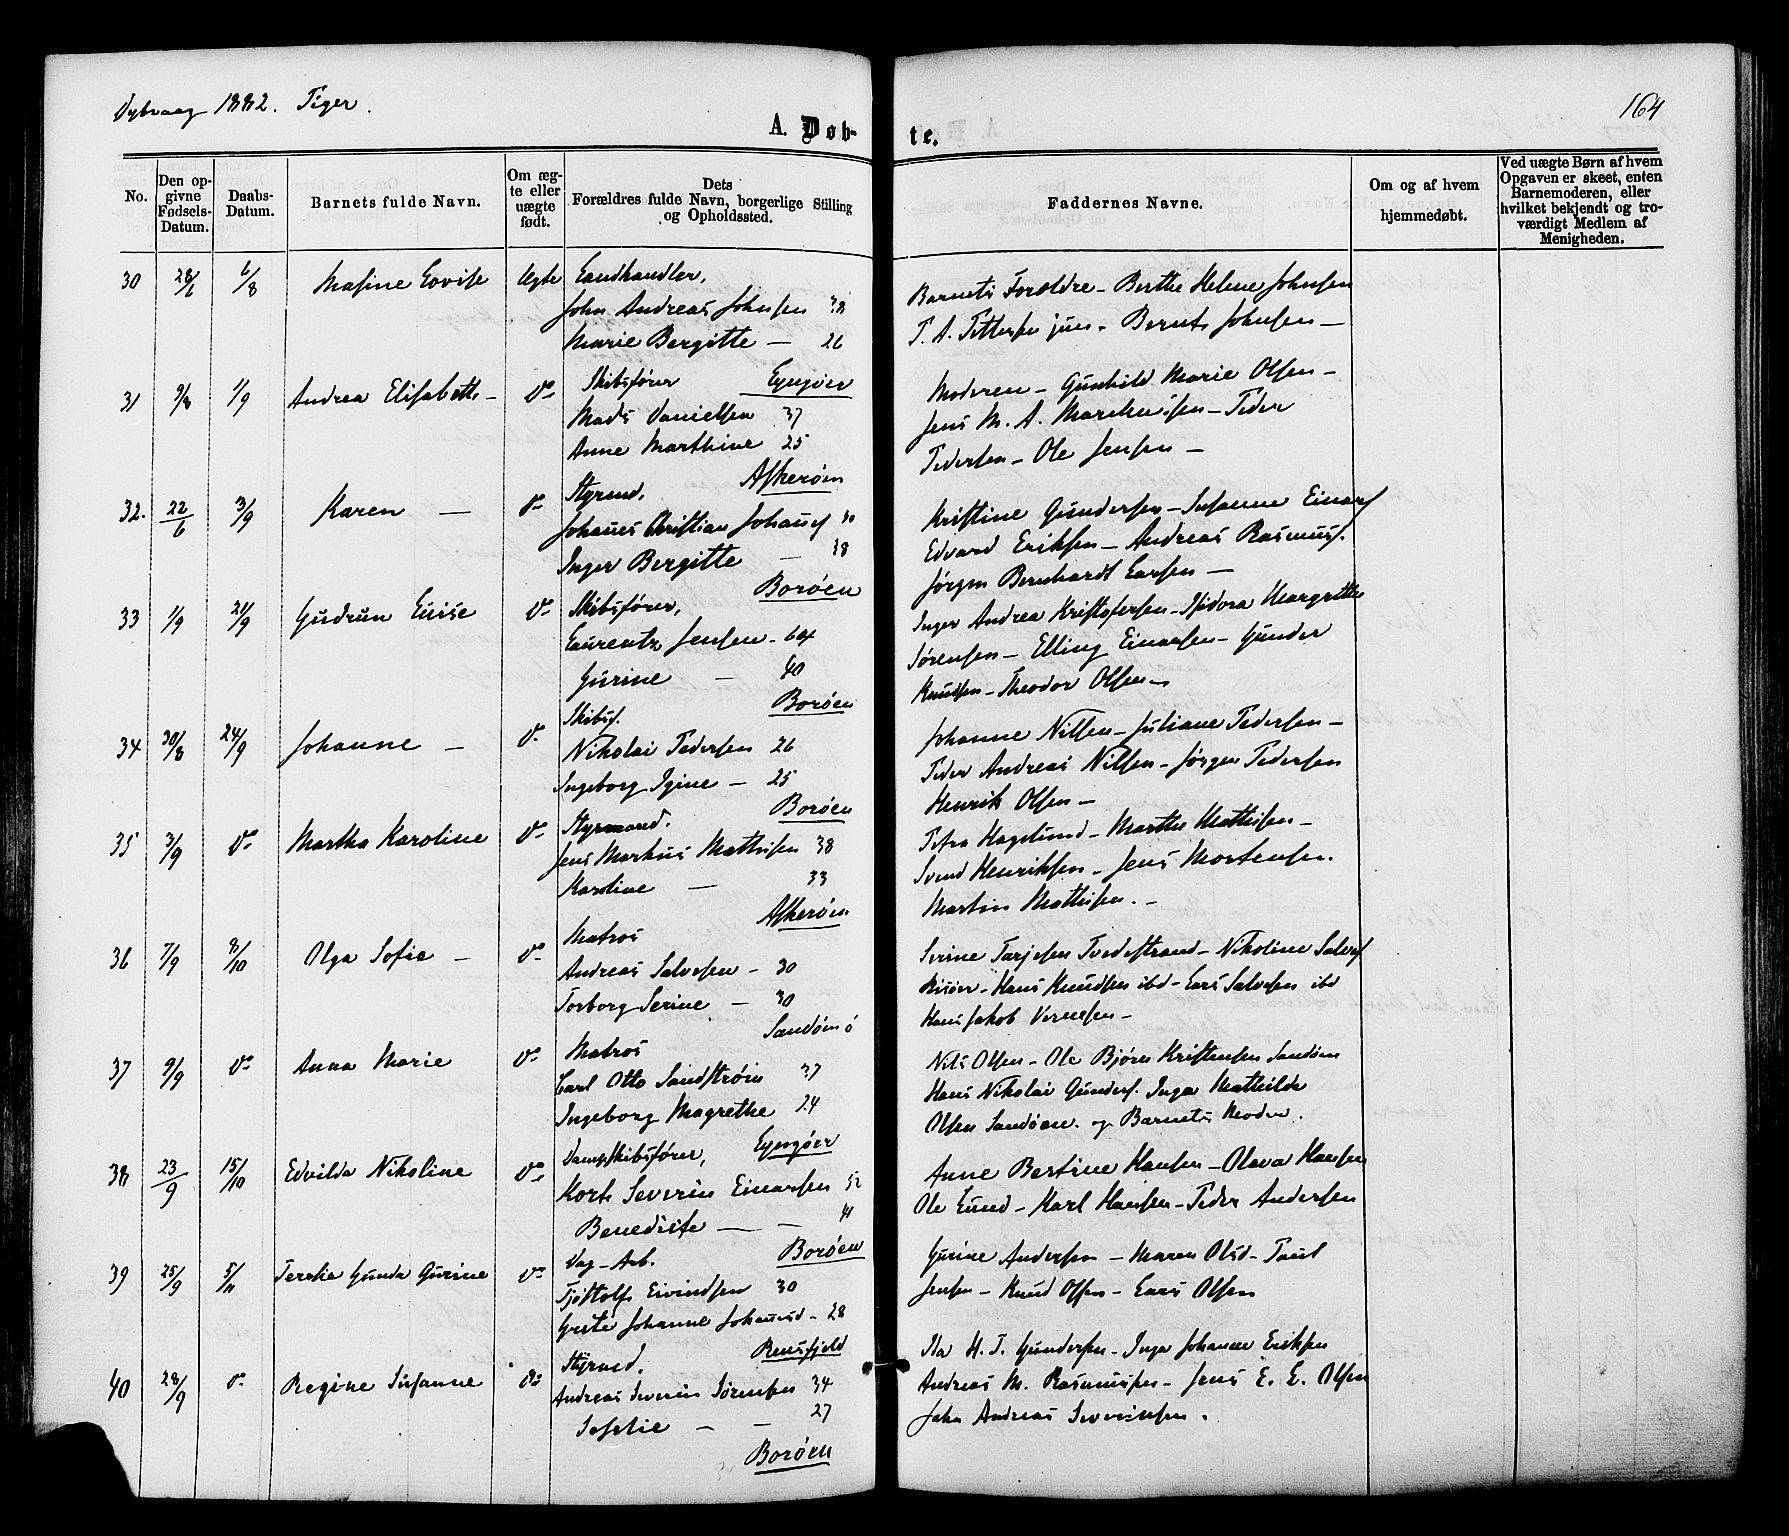 Dybvaag 1882. Piger.
164
A. Døb-te.
No.
Den opgivne Fødsels-Datum.
Daabs-Datum.
Barnets fulde Navn.
Om ægte eller uægte født.
Dets Forældres fulde Navn, borgerlige Stilling og Opholdssted.
Faddernes Navne.
Om og af hvem hjemmedøbt.
Ved uægte Børn af hvem Opgaven er skeet, enten Barnemoderen, eller hvilket bekjendt og troværdigt Medlem af Menigheden.
30 28/6 6/8 Masine Lovise Ægte Landhandler,
John Andreas Johnsen 38
Marie Bergitte — 26
Lyngøer
Barnets Forældre – Berthe Helene Johnsen
P. A. Pettersen jun. – Bernt Johnsen —
31 9/8 1/9 Andrea Elisabeth – Do Skibsfører
Mads Danielsen 37
Anne Marthine 25
Askerøen
Moderen – Gunhild Marie Olsen –
Jens M. A. Markussen – Peder
Pedersen – Ole Jensen –
32. 22/6 3/9 Karen — Do Styrmd.
Johanes Christian Johansf 40
Inger Bergitte — 38
Borøen
Kristine Gundersen – Susanne Einarsf
Edvard Eriksen – Andreas Rasmusf.
Jørgen Bernhardt Larsen —
33 1/9 21/9 Gudrun Luise Do Skibsfører,
Laurentz Jensen – 64
Gurine — 40
Borøen
Inger Andrea Kristofersen – Isidora Margrethe
Sørensen – Elling Einarsen – Gunder
Knudsen – Theodor Olsen –
34 30/8 24/9 Johanne — Do Skibsf.
Nikolai Pedersen 26
Ingeborg Igine – 25
Borøen
Johanne Nilsen – Juliane Pedersen –
Peder Andreas Nilsen – Jørgen Pedersen
Henrik Olsen –
35 3/9 Do Martha Karoline Do Styrmand.
Jens Markus Mathisen 38
Karoline — 33
Askerøen
Petra Hagelund – Marthe Mathisen –
Svend Henriksen – Jens Mortensen.
Martin Mathisen. –
36 7/9 8/10 Olga Sofie — Do Matros
Andreas Salvesen – 30
Torborg Serine – 30
Sandøen
Serine Tarjesen Tvedestrand – Nikoline Salvesf
Risøer – Hans Knudsen ibd – Lars Salvesen ibd
Hans Jakob Vernesen –
37 9/9 Do Anna Marie Do Matros
Carl Otto Sandstrøm 37
Ingeborg Magrethe 24
Lyngøer
Nils Olsen – Ole Bjørn Kristensen Sandøen
Hans Nikolai Gundersf. Inga Mathilde
Olsen Sandøen og Barnets Moder.
38 23/9 15/10 Edvilda Nikoline Do Dampskibsfører,
Kort Severin Einarsen 52
Benedicte — — 41
Borøen
Anne Bertine Hansen – Olava Hansen
Ole Lund – Karl Hansen – Peder Andersen
39 25/9 5/11 Terelie Gunda Gurine Do Dag–Arb.
Tjøstolf Eivindsen 30
Grete Johanne Johannesd – 28
Rensfjeld
Gurine Andersen – Maren Olsd – Paul
Jensen – Knud Olsen – Lars Olsen
40 28/9 Do Regine Susanne Do Styrmd.
Andreas Severin Sørensen 34
Sofie — — 27
Borøen
Ida H. P. Gundersen – Inga Johanne Eriksen
Andreas M. Rasmussen – Jens E. E. Olsen
John Andreas Severinsen.